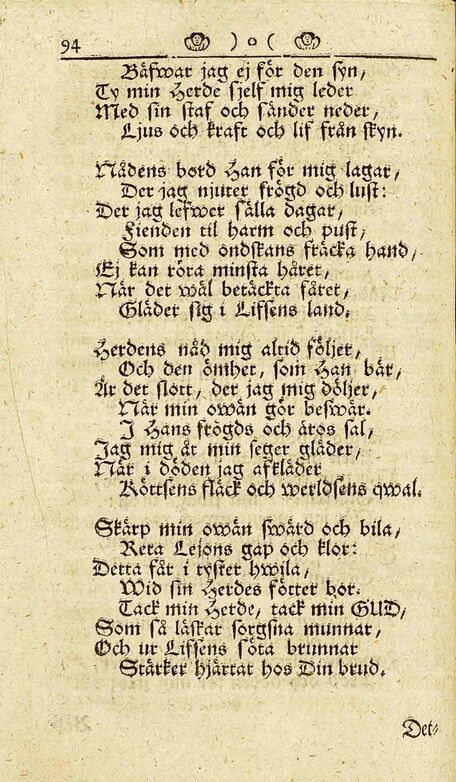 94 ) o (
Bäfwar jag ej för den syn,
Ty min Herde sjelf mig leder
Med sin staf och sänder neder,
Ljus och kraft och lif från skyn.
Nådens bord Han för mig lagar,
Der jag njuter frögd och lust:
Der jag lefwer sälla dagar,
Fienden til harm och pust,
Som med ondskans fräcka hand,
Ej kan röra minsta håret,
När det wäl betäckta fåret,
Gläder sig i Lifsens land.
Herdens nåd mig altid följer,
Och den ömhet, som Han bär,
Är det slott, der jag mig döljer,
När min owän gör beswär.
I Hans frögds och äros sal,
Jag mig åt min seger gläder,
När i döden jag afkläder
Köttsens fläck och werldsens qwal.
Skärp min owän swärd och bila,
Reta Lejons gap och klor:
Detta får i tyster hwila,
Wid sin Herdes fötter bor.
Tack min Herde, tack min GUD,
Som så läskar sorgsna munnar,
Och ur Lifsens söta brunnar
Stärker hjärtat hos Din brud.
Det-